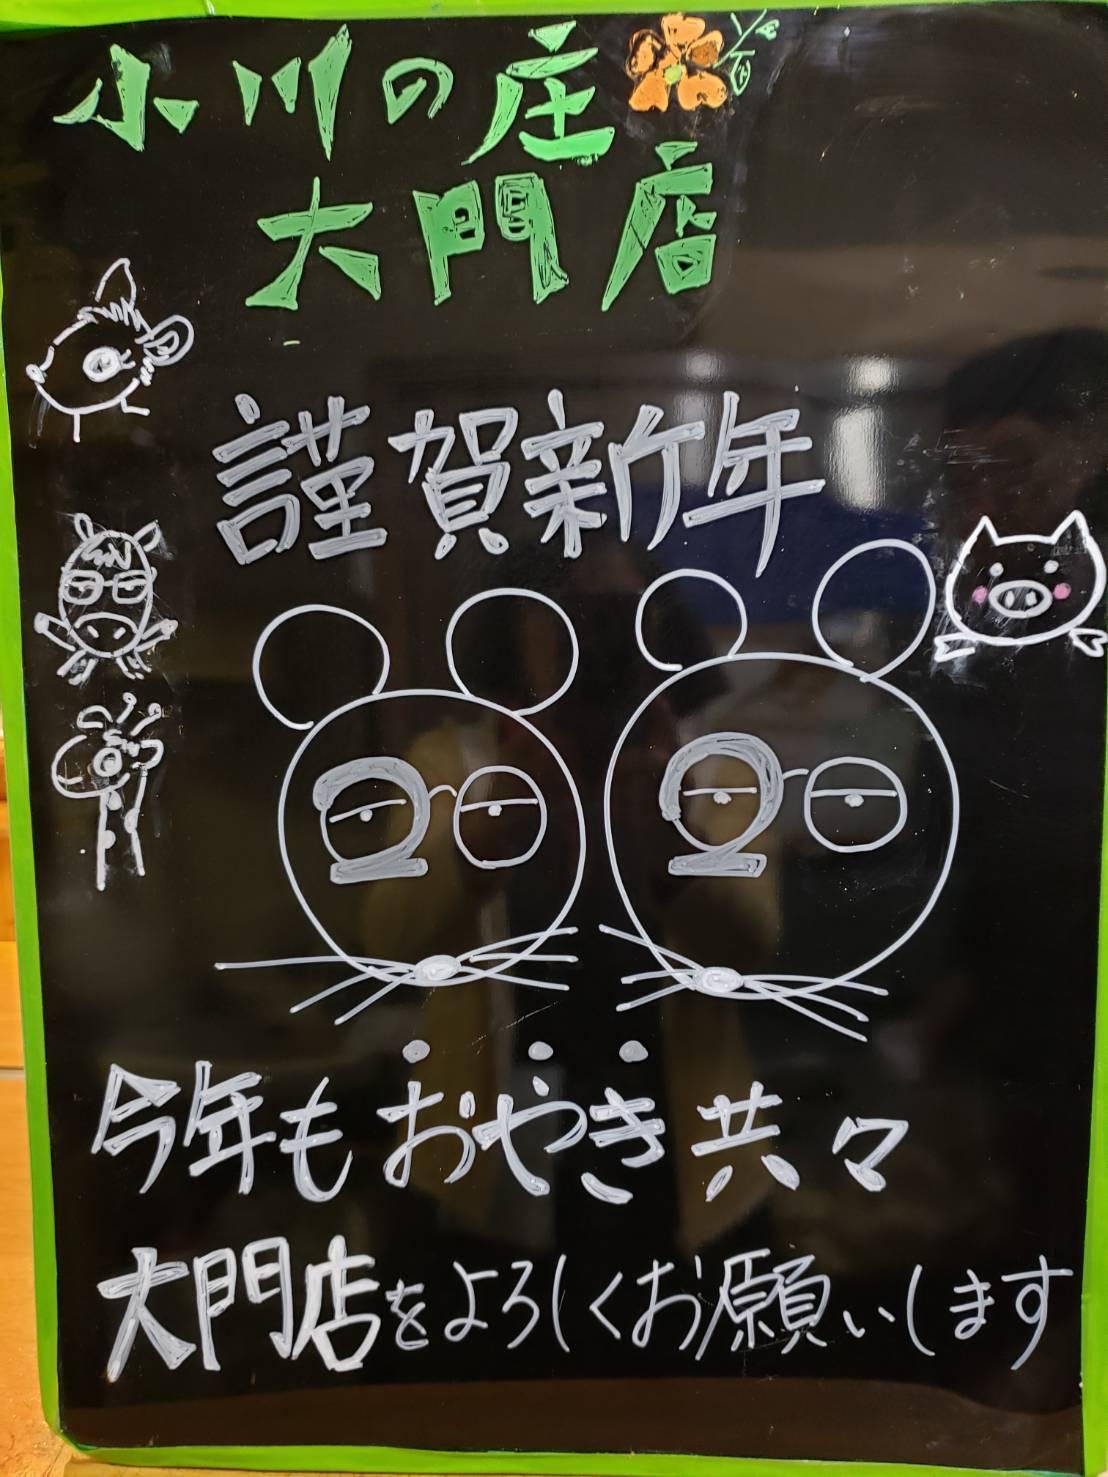 小川の庄
大門店
謹賀新年
2020
今年もおやき共々
大門店をよろしくお願いします